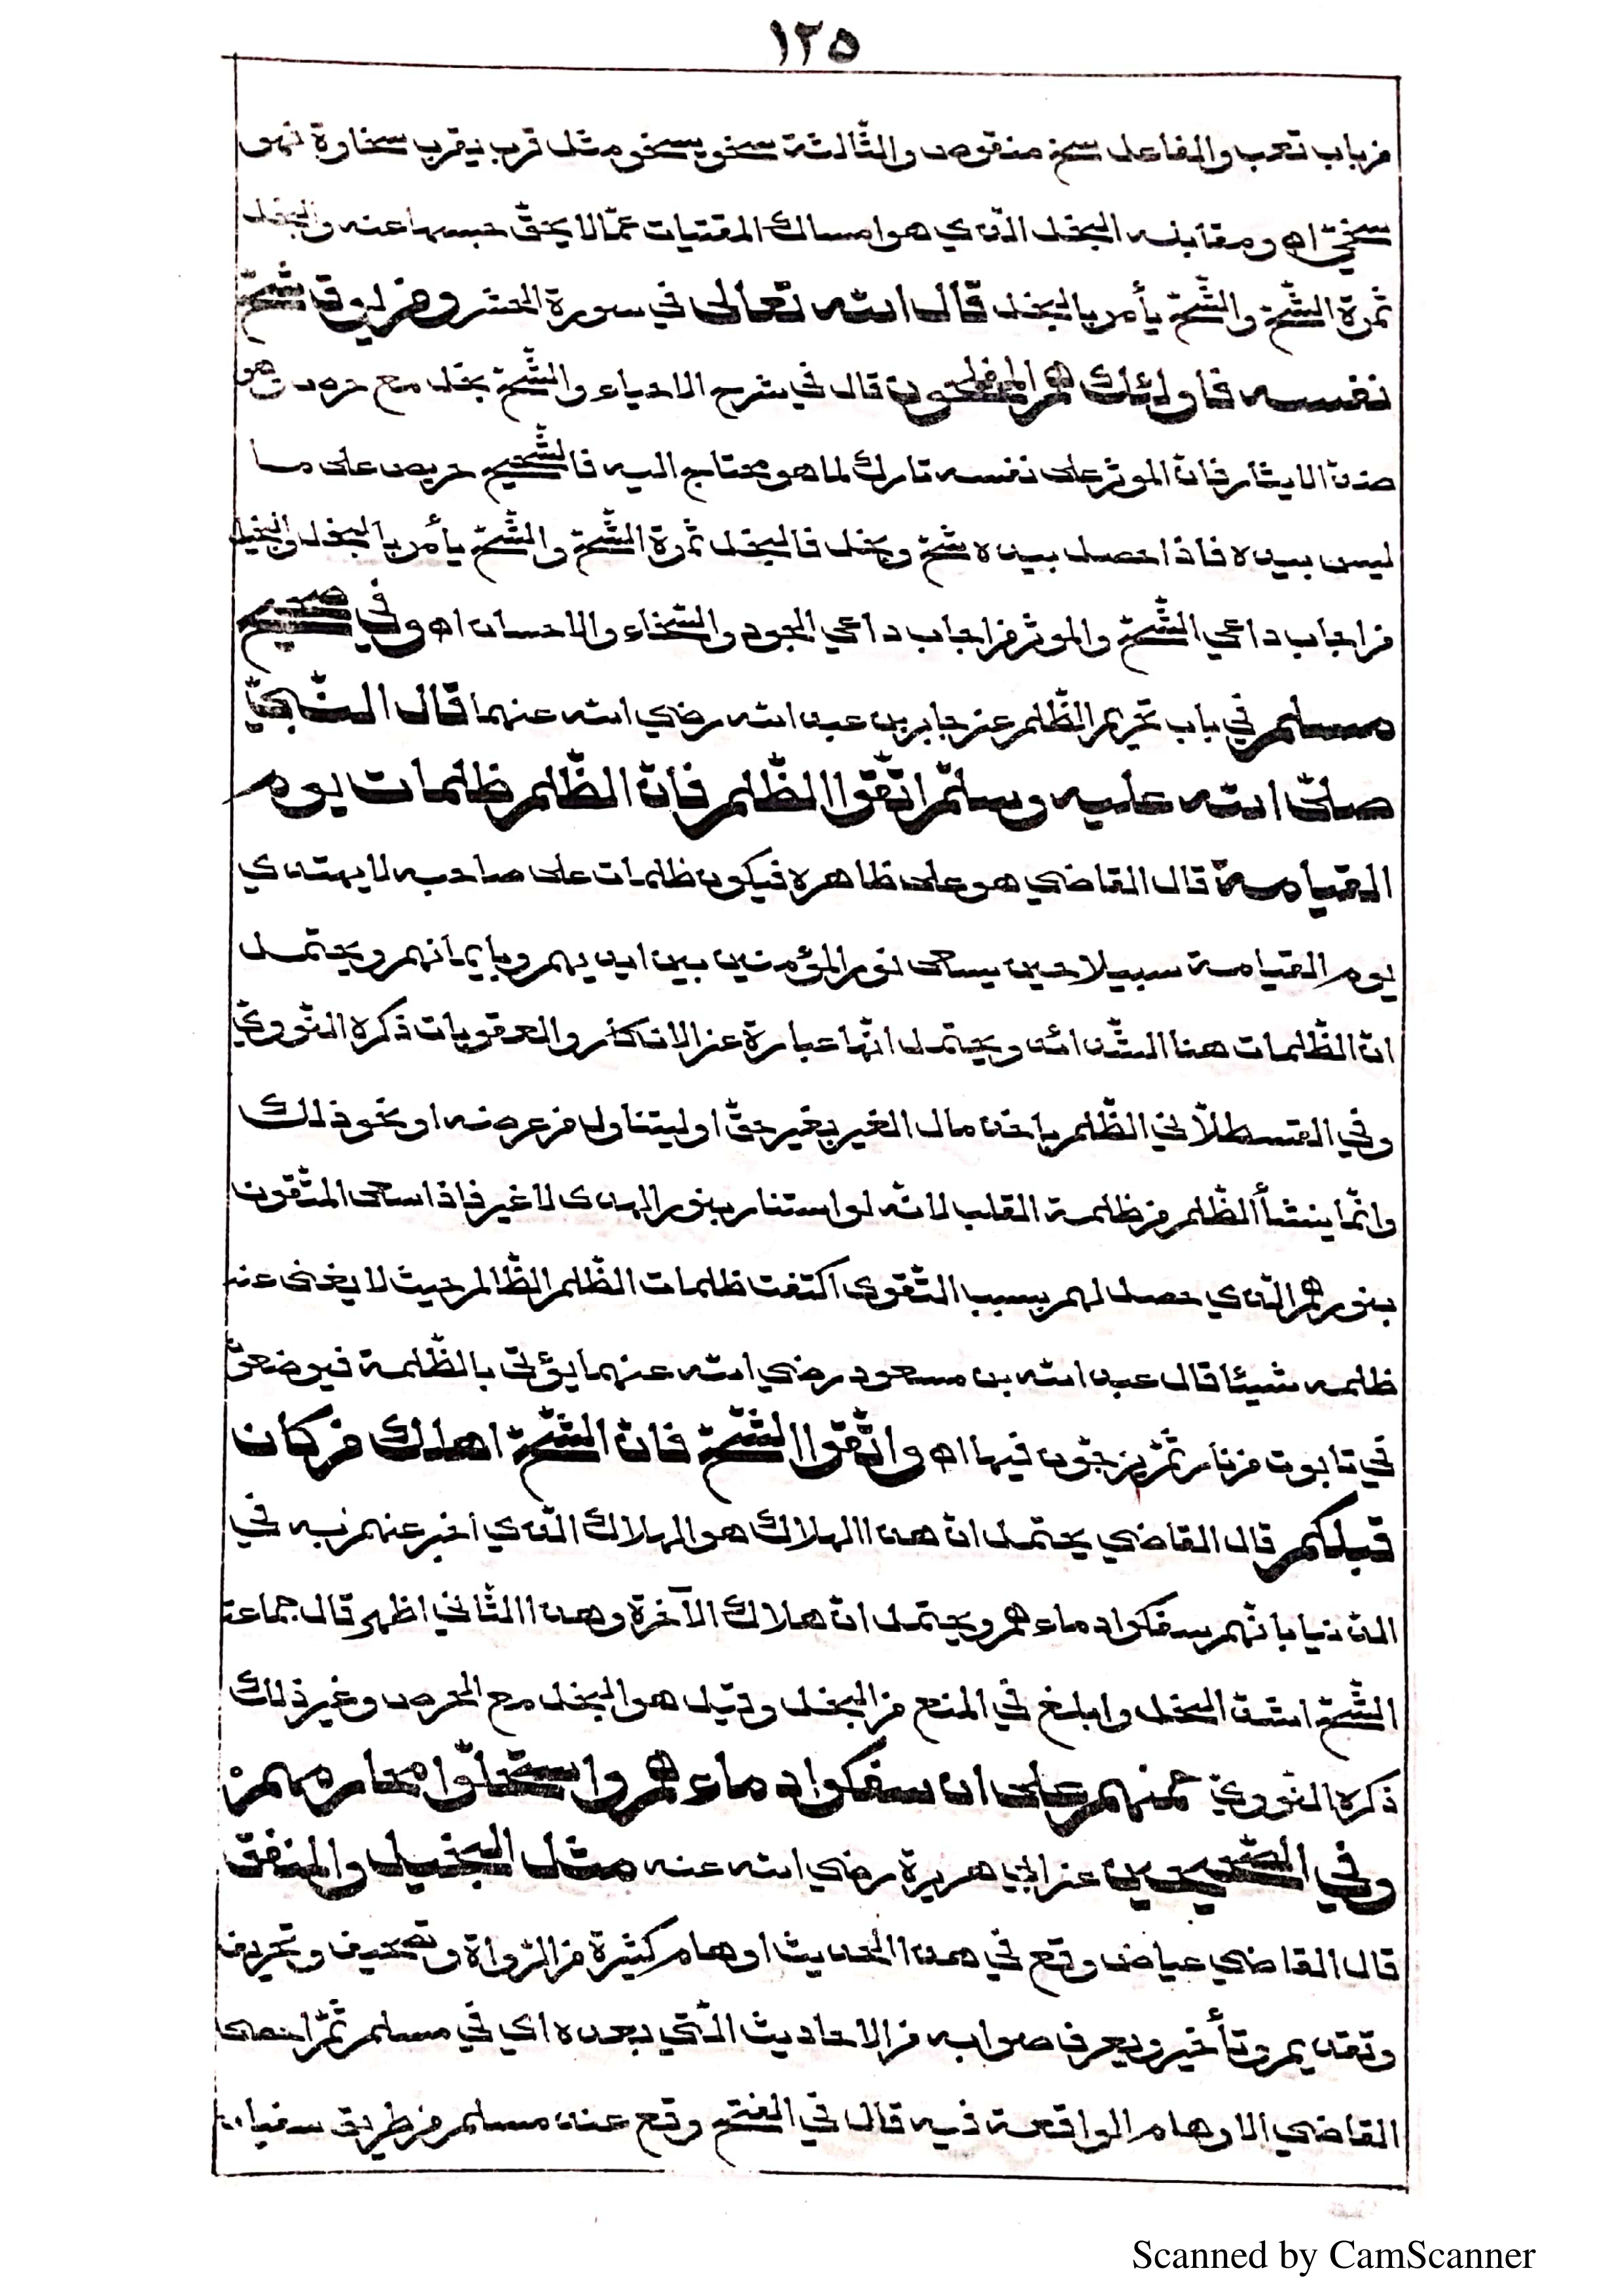 ١٢٥
من باب تعب والفاعل سخ منقوص والثالثة سخو يسخو مثل قرب يقرب سخاوة فهو
سخيّ اه ومقابله البخل الّذي هو امساك المقتنيات عمّا لا يحقّ حبسها عنه والبخل
ثمرة الشّحّ والشّحّ يأمر بالبخل قال الله تعالى في سورة الحشر ومن يوق شحّ
نفسه فاولئك هم المفلحون قال في شرح الاحياء والشّحّ بخل مع حرص فهو
ضدّ الايثار فانّ الموثر على نفسه تارك لما هو محتاج اليه فالشّحيح حريص على ما
ليس بيده فاذا حصل بيده شحّ وبخل فالبخل ثمرة الشّحّ والشّحّ يأمر بالبخل والبخيل
من اجاب داعي الشّحّ والموثر من اجاب داعي الجود والسّخاء والاحسان اه وفي صحيح
مسلم في باب تحريم الظّلم عن جابر بن عبد الله رضي الله عنهما قال النّبيّ
صلّى الله عليه وسلّم اتّقوا الظّلم فانّ الظّلم ظلمات يوم
القيامة قال القاضي هو على ظاهره فيكون ظلمات على صاحبه لا يهتدي
يوم القيامة سبيلا حين يسعى نور المؤمنين بين ايديهم وبايمانهم ويحتمل
انّ الظّلمات هنا الشّدائد ويحتمل انّها عبارة عن الانكار والعقوبات ذكره النّوويّ
وفي القسطلاّني الظّلم باخذ مال الغير بغير حقّ او ليتناول من عرضه او نحو ذلك
وانّما ينشأ الظّلم من ظلمة القلب لانّه لو استنار بنور الهدى لا غير فاذا سعى المتّقون
بنورهم الّذي حصل لهم بسبب التّقوى اكتفت ظلمات الظّلم الظّالم حيث لا يغنى عنه
ظلمه شيئا قال عبد الله بن مسعود رضي الله عنهما يؤتى بالظّلمة فيوضعون
في تابوت من نار ثمّ يزجّون فيها اه واتّقوا الشّحّ فانّ الشّحّ اهلك من كان
قبلكم قال القاضي يحتمل انّ هذا الهلاك هو الهلاك الّذي اخبر عنهم به في
الدّنيا بانّهم سفكوا دماءهم ويحتمل انّ هلاك الآخرة وهذا الثّاني اظهر قال جماعة
الشّحّ اشدّ البخل وابلغ في المنع من البخل وقيل هو البخل مع الحرص وغير ذلك
ذكره النّوويّ حملهم على ان سفكوا دماءهم واستحلّوا محارمهم
وفي الصّحيحين عن ابي هريرة رضي الله عنه مثل البخيل والمنفق
قال القاضي عياض وقع في هذا الحديث اوهام كثيرة من الرّواة وتصحيف وتحريف
وتقديم وتأخير ويعرف صوابه من الاحاديث الّتي بعده اي في مسلم ثمّ احصى
القاضي الاوهام الواقعة فيه قال في الفتح وقع عند مسلم من طريق سفيان
Scanned by CamScanner